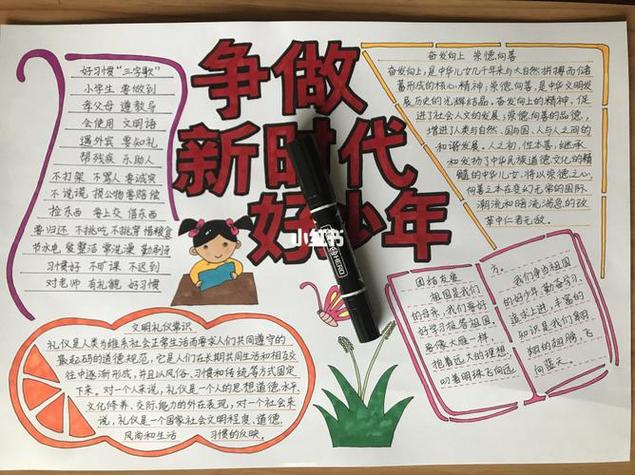 争做
新时代
好少年
好习惯“三字歌”
小学生 要做到
孝父母 遵教导
会使用 文明语
遇外宾 要知礼
帮残疾 乐助人
不打架 不骂人 要诚实
不说谎 损公物 要赔偿
捡东西 要上交 借东西
要归还 不挑吃 不挑穿 惜粮食
节水电 爱整洁 常洗澡 勤刷牙
习惯好 不旷课 不迟到
对老师 有礼貌 好习惯
奋发向上 崇德向善
奋发向上,是中华儿女几千年来与大自然拼搏而储
蓄形成的核心精神;崇德向善,是中华文明发
展历史的光辉结晶。奋发向上的精神,促
进了社会人文的发展;崇德向善的品德,
增进了人类与自然、国与国、人与人之间的
和谐发展。人之初,性本善,继承
和发扬了中华民族道德文化的精
髓的中华儿女,将以崇德之心,
向善之本在变幻无常的国际
潮流和暗流涌急的改
革中仁者无敌。
小红书
HERO
团结友爱
祖国是我们
的母亲,我们要好
好学习报答祖国。
要像大雁一样,
抱着远大的理想,
叼着明珠飞向远
方。
我们争当祖国
的好少年,勤奋学习、
追求上进,丰富的
知识是我们翱
翔的翅膀,飞
向蓝天。
文明礼仪常识
礼仪是人类为维系社会正常生活而要求人们共同遵守的
最起码的道德规范,它是人们在长期共同生活和相互交
往中逐渐形成,并且以风俗、习惯和传统等方式固定
下来。对一个人来说,礼仪是一个人的思想道德水平、
文化修养、交际能力的外在表现,对一个社会来
说,礼仪是一个国家社会文明程度、道德
风尚和生活 习惯的反映。